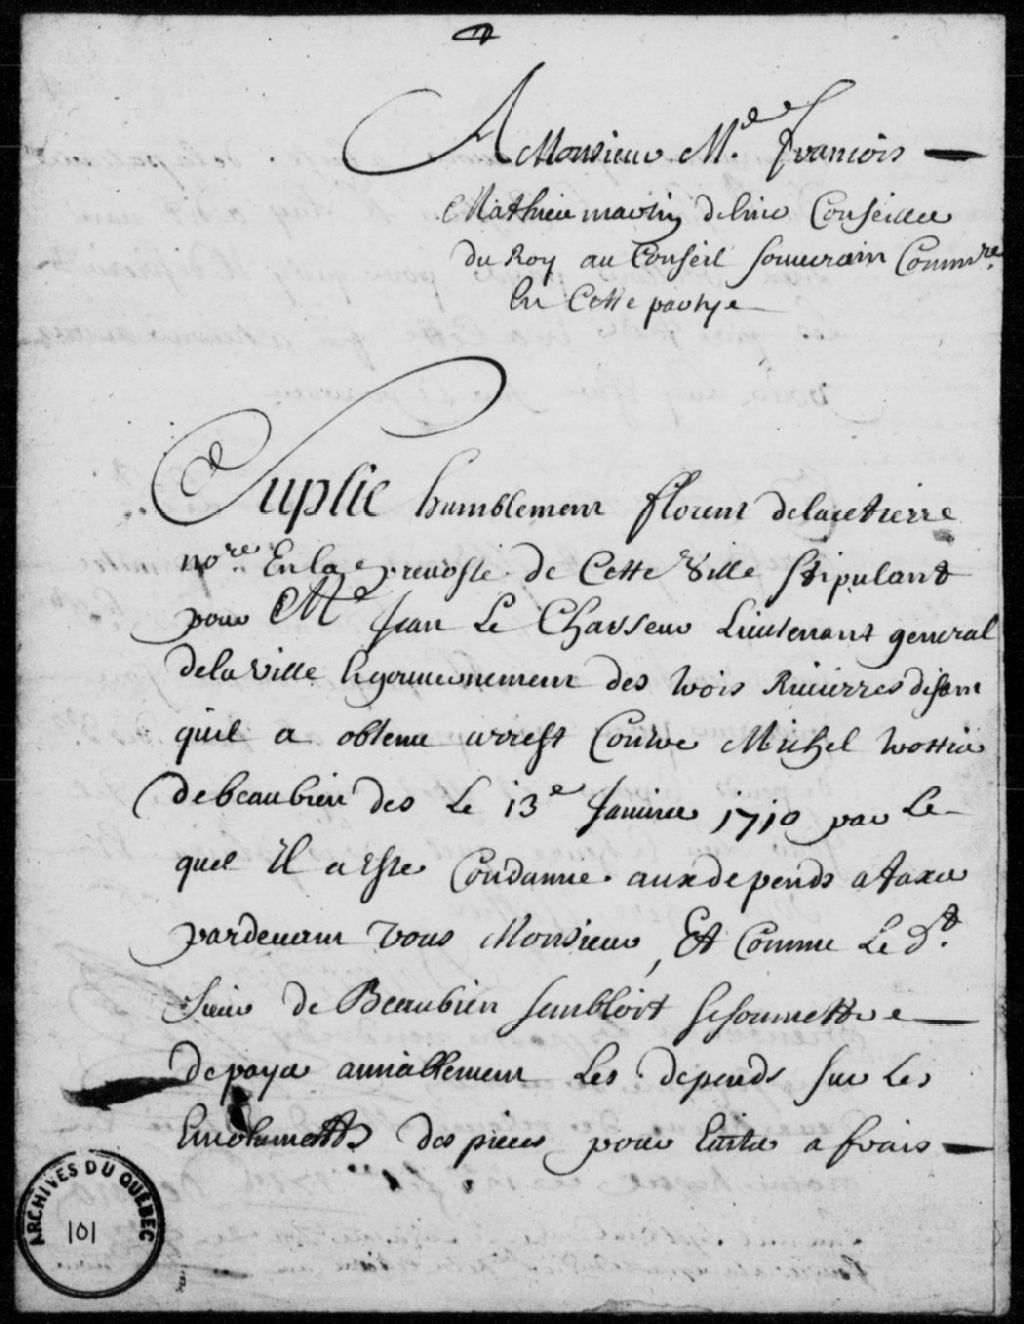 A Monsieur M.e francois
Mathieu martin delino Conseiller
du Roy au Conseil souuerain Commre.
En Cette partye
Suplie humblement florent delacetierre
nore. En la preuosté de Cette Ville stipulant
pour Me Jean Le Chasseur Lieutenant general
dela Ville & gouuernement des trois Riuierres disant
quil a obtenu arrest Contre Michel trottier
debeaubien des Le 13e Januier 1710 par Le-
quel Il a este Condamné aux depends a taxer
pardeuant vous Monsieur, Et Comme Le dt.
sieur de Beaubien sembloit se soumettre
de payer amiablement Les depends sur Les
Emoluments des pieces pour Euiter a frais
ARCHIVES DU QUÉBEC
101